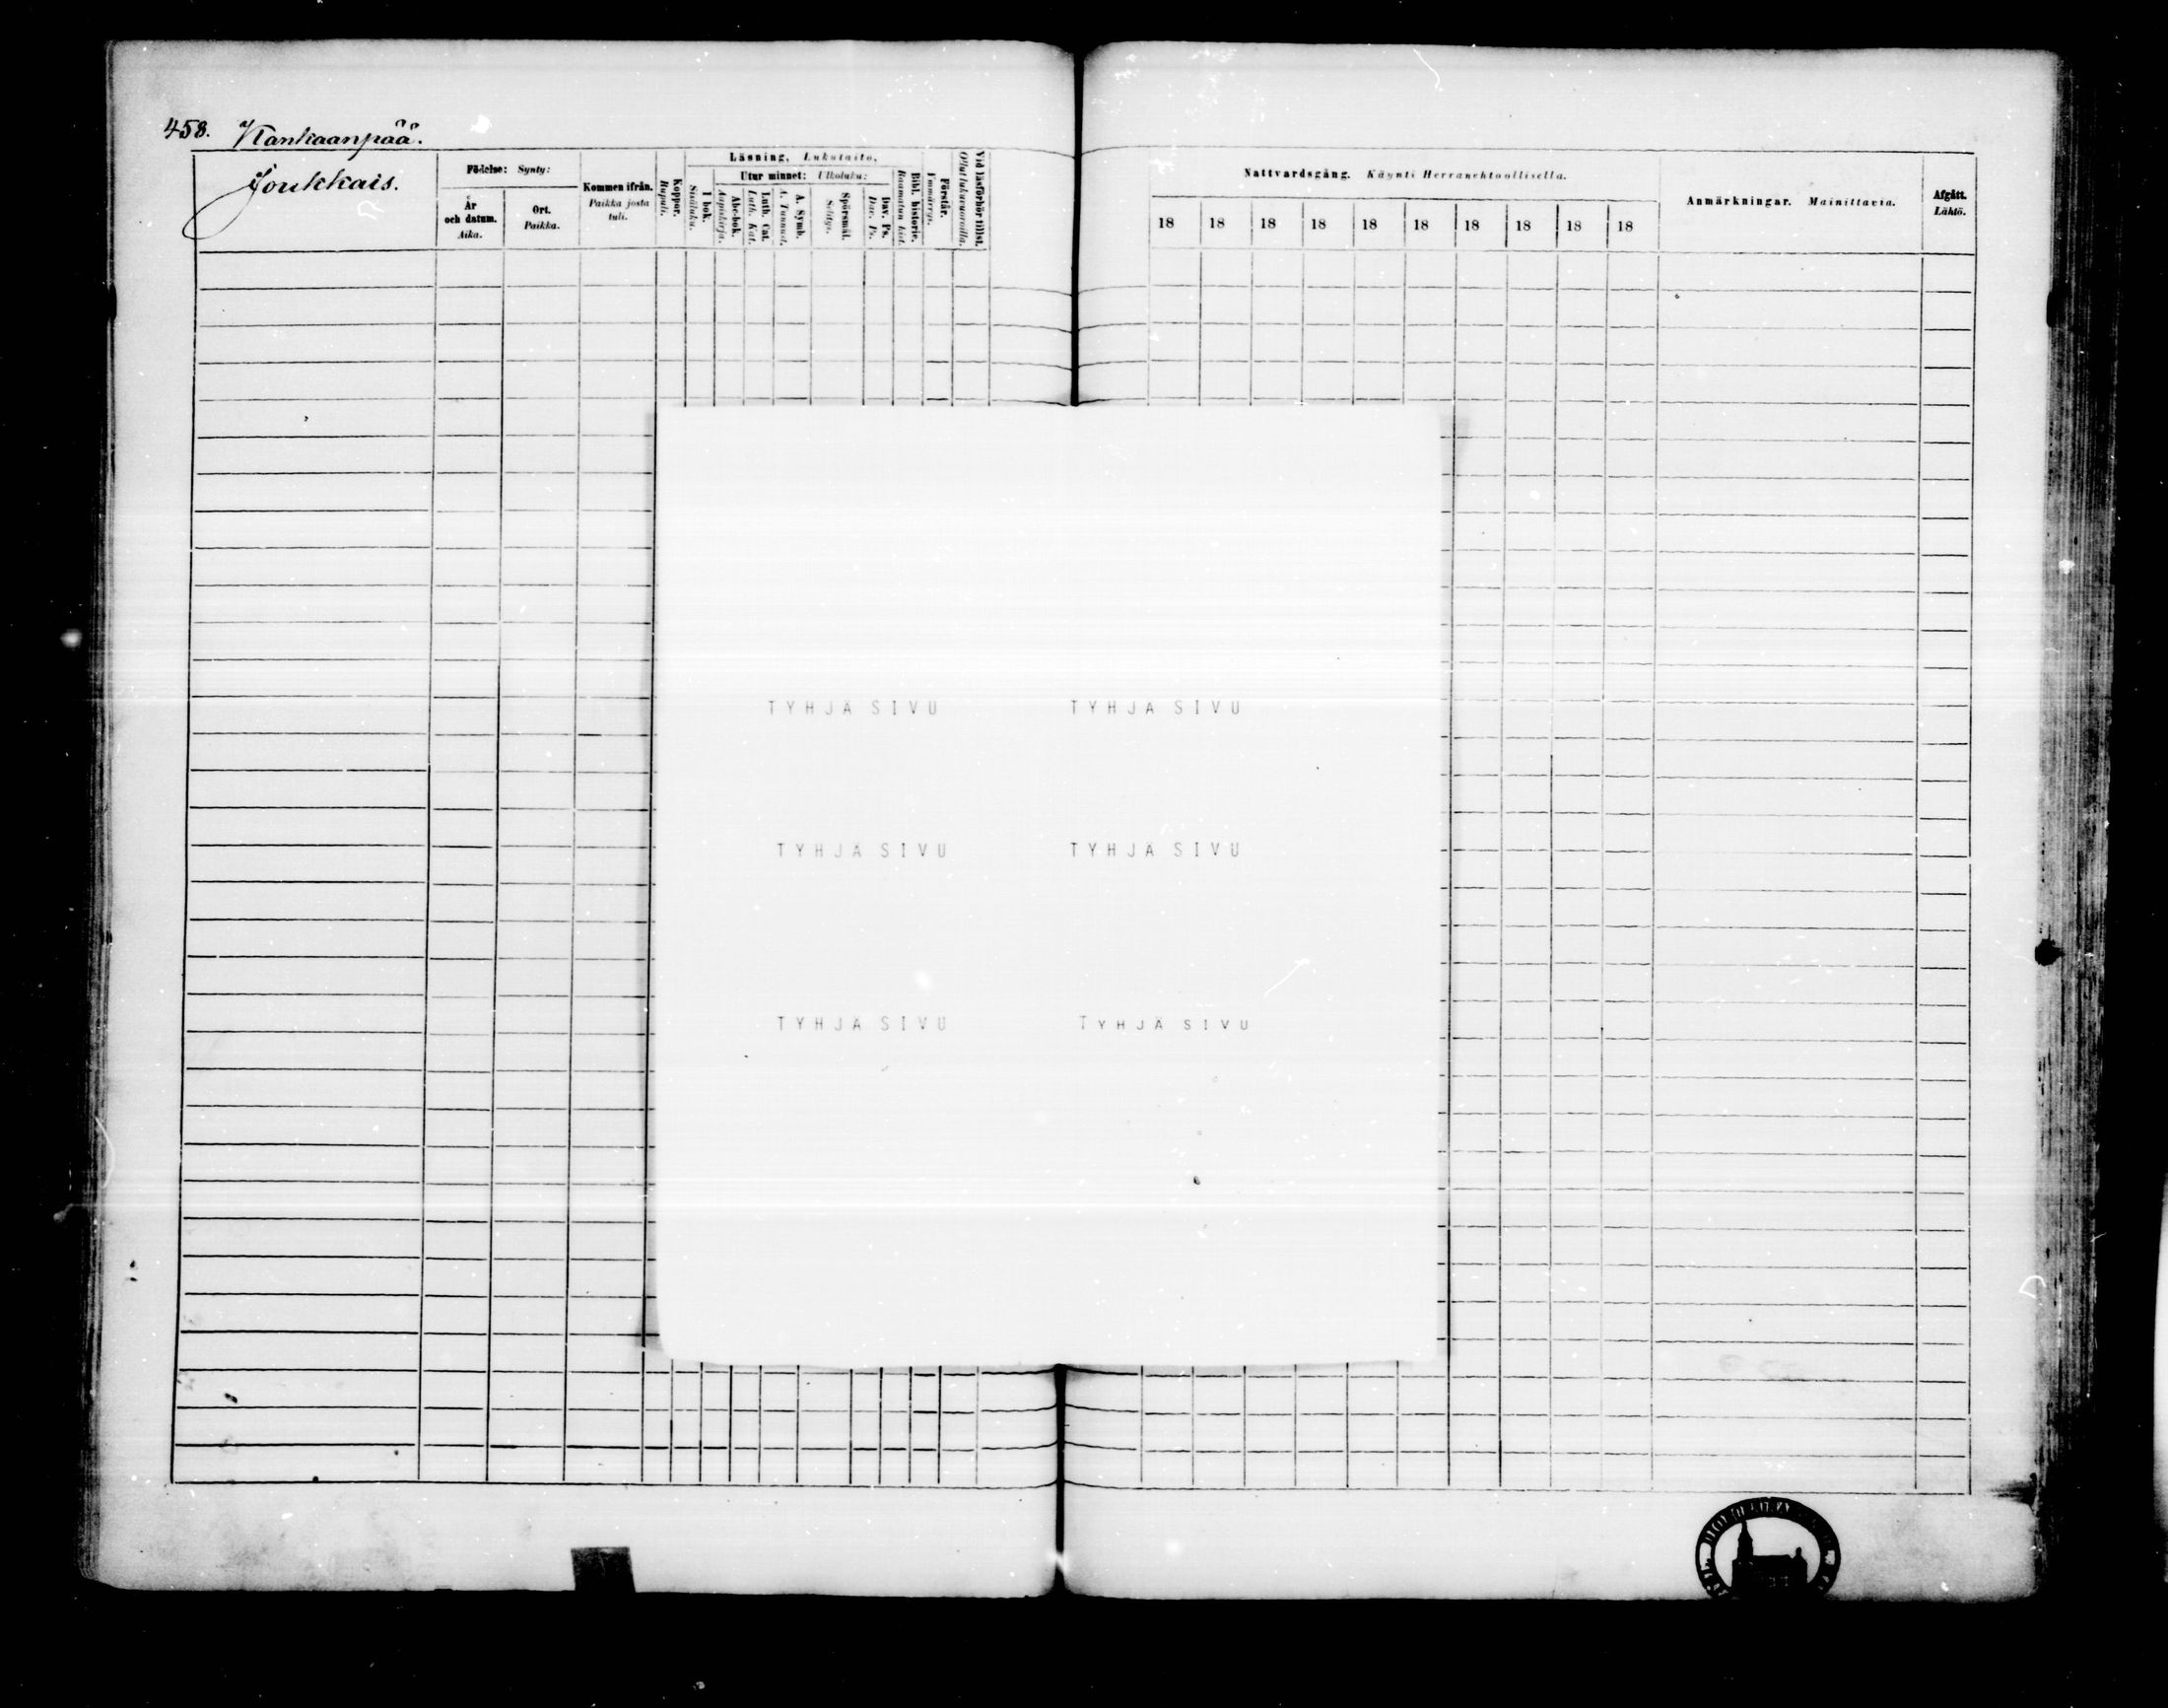 458. Kankaanpää.
Joukkais.
Födelse: Synty:
År
och datum.
Aika.
Ort.
Paikka.
Kommen ifrån.
Paikka josta
tuli.
Koppor.
Rupuli.
Läsning, Lukutaito,
I bok.
Sisäluku.
Utur minnet: Ulkoluku:
Abc-bok.
Aapiskirja.
Luth. Cat.
Luth. Kat.
A. Symb.
A. Tunnust.
Spörsmål.
Selitys.
Dav. Ps.
Dav. Ps.
Bibl. historie.
Raamatun hist.
Förstår.
Ymmärrys.
Vid läsförhör tillst.
Ollut lukuvuoroilla.
Nattvardsgång. Käynti Herranehtoollisella.
18 18 18 18 18 18 18 18 18 18
Anmärkningar. Mainittavia.
Afgått.
Lähtö.
TYHJÄ SIVU TYHJÄ SIVU
TYHJÄ SIVU TYHJÄ SIVU
TYHJÄ SIVU TYHJÄ SIVU